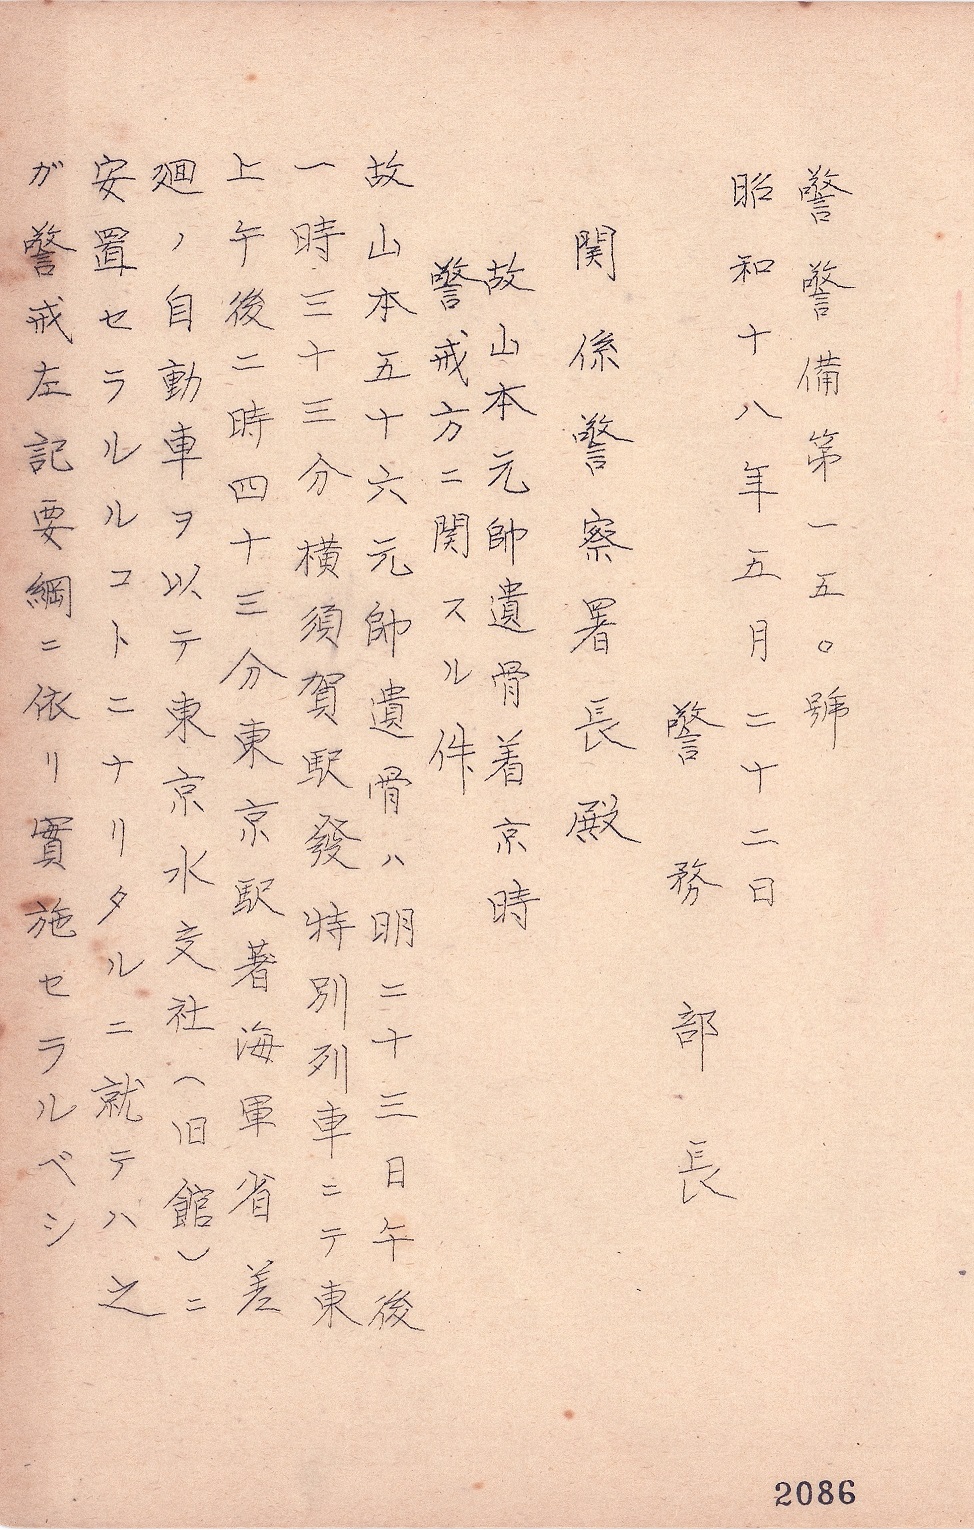 警警備第一五〇號
昭和十八年五月二十二日
警務部長
関係警察署長殿
故山本元帥遺骨着京時
警戒方ニ関スル件
故山本五十六元帥遺骨ハ明二十三日午後
一時三十三分横須賀駅發特別列車ニテ東
上午後二時四十三分東京駅著海軍省差
廻ノ自動車ヲ以テ東京水交社(旧館)ニ
安置セラルルコトニナリタルニ就テハ之
ガ警戒左記要綱ニ依リ實施セラルベシ
2086